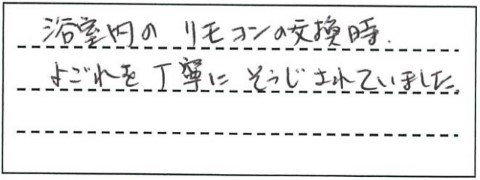 浴室内の リモコンの交換時.
よごれを丁寧に そうじされていました。